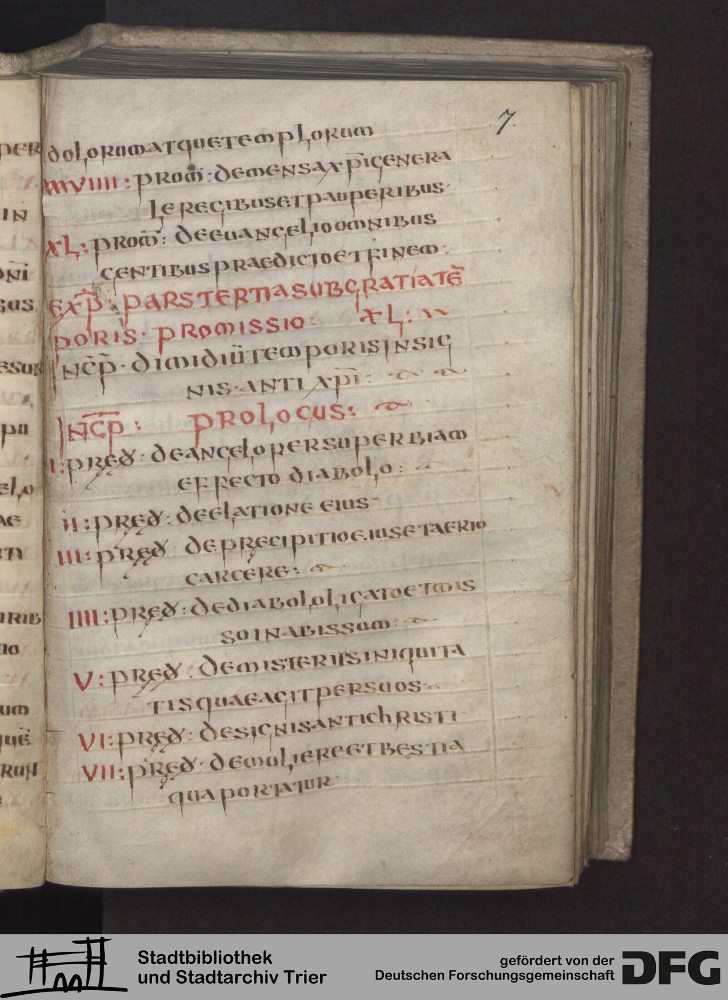 7
dolorum atque templorum
XXXVIIII: prom̅: de mensa x̅p̅i genera
le regibus et pauperibus·
XL: prom̅: de euangelio omnibus
gentibus praedicto et finem:
exp̅: pars tertia sub gratia te̅
poris· promissio· XL:
INC̅P̅· dimidiu̅ temporis in sig
nis· anti x̅p̅i:
INC̅P̅: prologus:
I: pred̶: de angelo per superbiam
effecto diabolo:
II: pred̶: de elatione eius·
III: pred̶ de precipitio eius et aerio
carcere:
IIII: pred̶: de diabolo ligato et mis
so in abissum·
V: pred̶: de misteriis iniquita
tis quae agit per suos·
VI: pred̶: de signis antichristi·
VII: pred̶· de muliere et bestia
qua portatur·
Stadtbibliothek
und Stadtarchiv Trier
gefördert von der
Deutschen Forschungsgemeinschaft
DFG